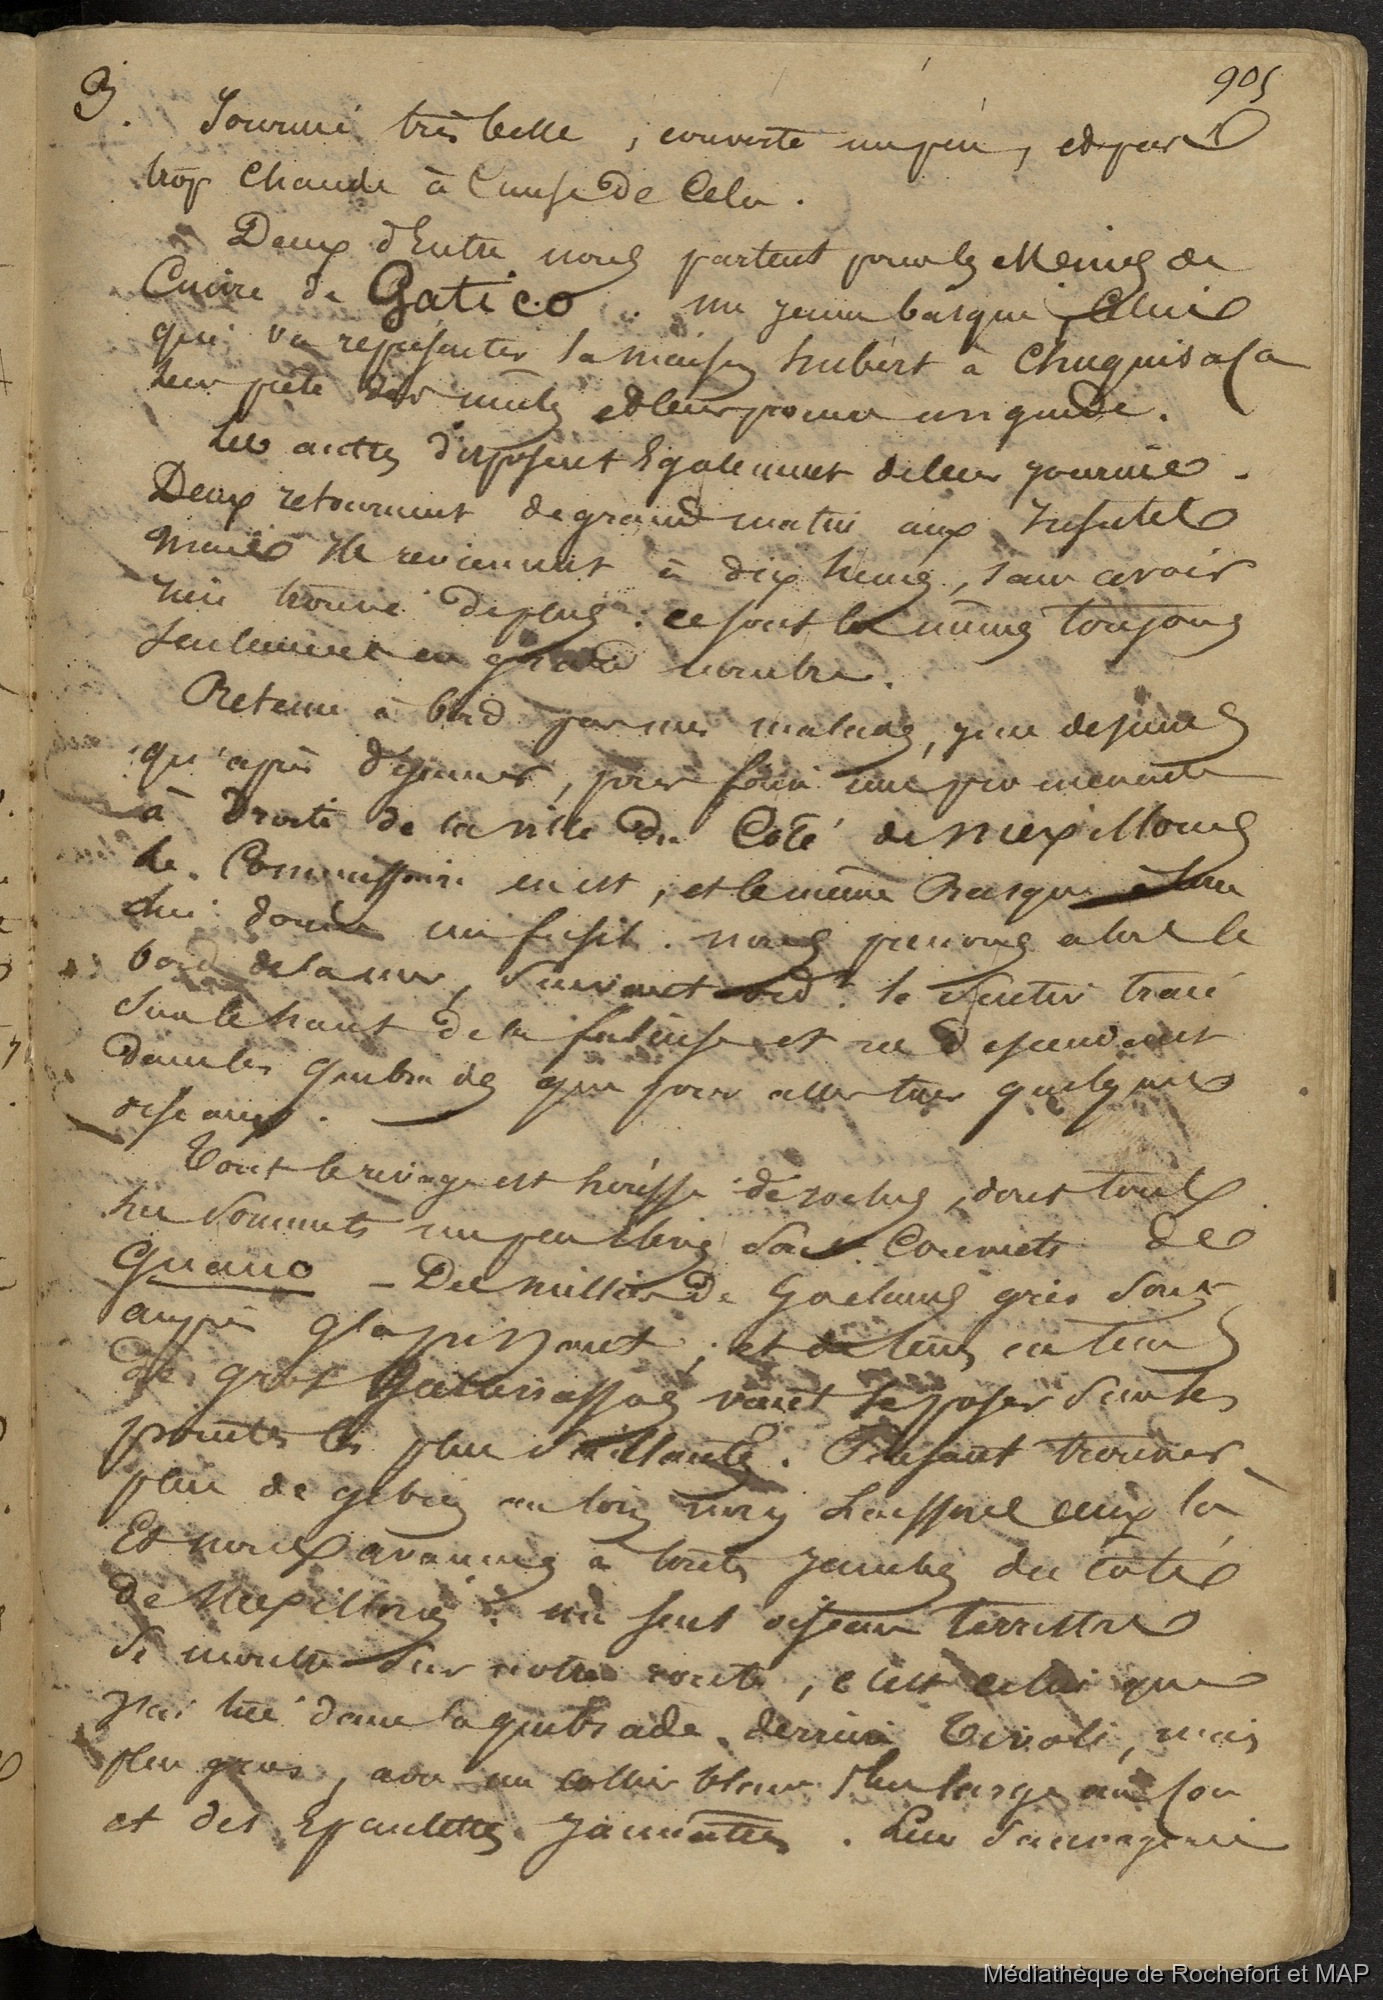 905
3. Journée très belle, couverte un peu, et pas
trop chaude à cause de cela.
Deux d'entre nous partent pour les Mines de
Cuivre de Gatico. un jeune basque, celui
qui va représenter la maison hubert a Chuquisaca
leur prête des mules et leur procure un guide.
Les autres disposent Egalement de leur journée.
Deux retournent de grand matin aux Insectes
mais ils reviennent à dix heures, sans avoir
rien trouvé de plus : ce sont les mêmes toujours
seulement en grand nombre.
Retenu à bord par mes malades, je ne descends
qu'après déjeuner, pour faire une promenade
à Droite de la ville du Côté de Mexillones
Le Commissaire en est, et le même Basque à qui
on donne un fusil. nous prenons alors le
bord de la mer, suivant le sentier tracé
sur le haut de la falaise et ne descendant
dans les quebrades que pour aller tuer quelques
oiseaux.
Tout le rivage est hérissé de roches, dont tous
les Sommets un peu élevés sont Couverts de
Guano - Des milliers de Goelands gris sont
auprès glapissant ; et de tems en tems
de gros vont se poser sur les
pointes les plus saillantes. Pensant trouver
plus de gibier au loin nous laissons ceux là
Et nous avançons à toutes jambes du côté
de Mexillones. un seul oiseau terrestre
se montre sur notre route, c'est celui que
j'ai tué dans la quebrade derrière Tivoli, mais
plus gros, avec un collier blanc plus large au cou
et des Epaulettes jaunâtres. Leur sauvagerie
Médiathèque de Rochefort et MAP